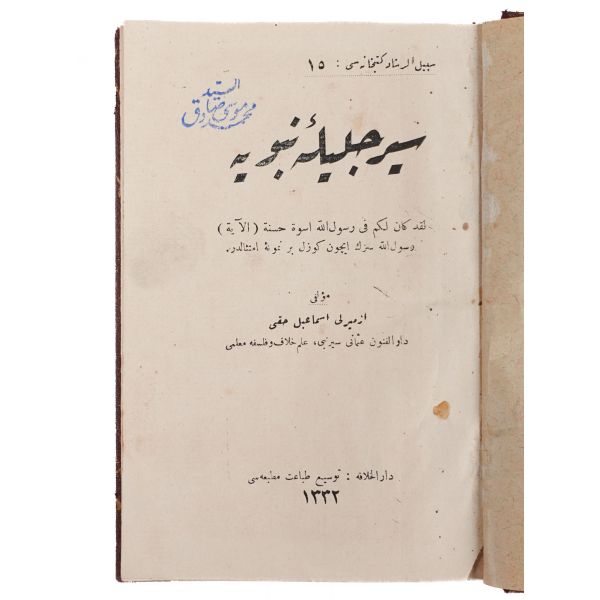 سبيل الرشاد كتبخانه سى : ١٥
السيد
محمد موسى صادق
سير جليلۀ نبويه
لقد كان لكم فى رسول الله اسوة حسنة ( الآية )
رسول الله سزك ايچون كوزل بر نمونۀ امتثالدر.
مؤلفى
ازميرلى اسماعيل حقى
دار الفنون عثمانى سير نبى، علم خلاف و فلسفه معلمى
دار الخلافه : توسيع طباعت مطبعه سى
١٣٣٢